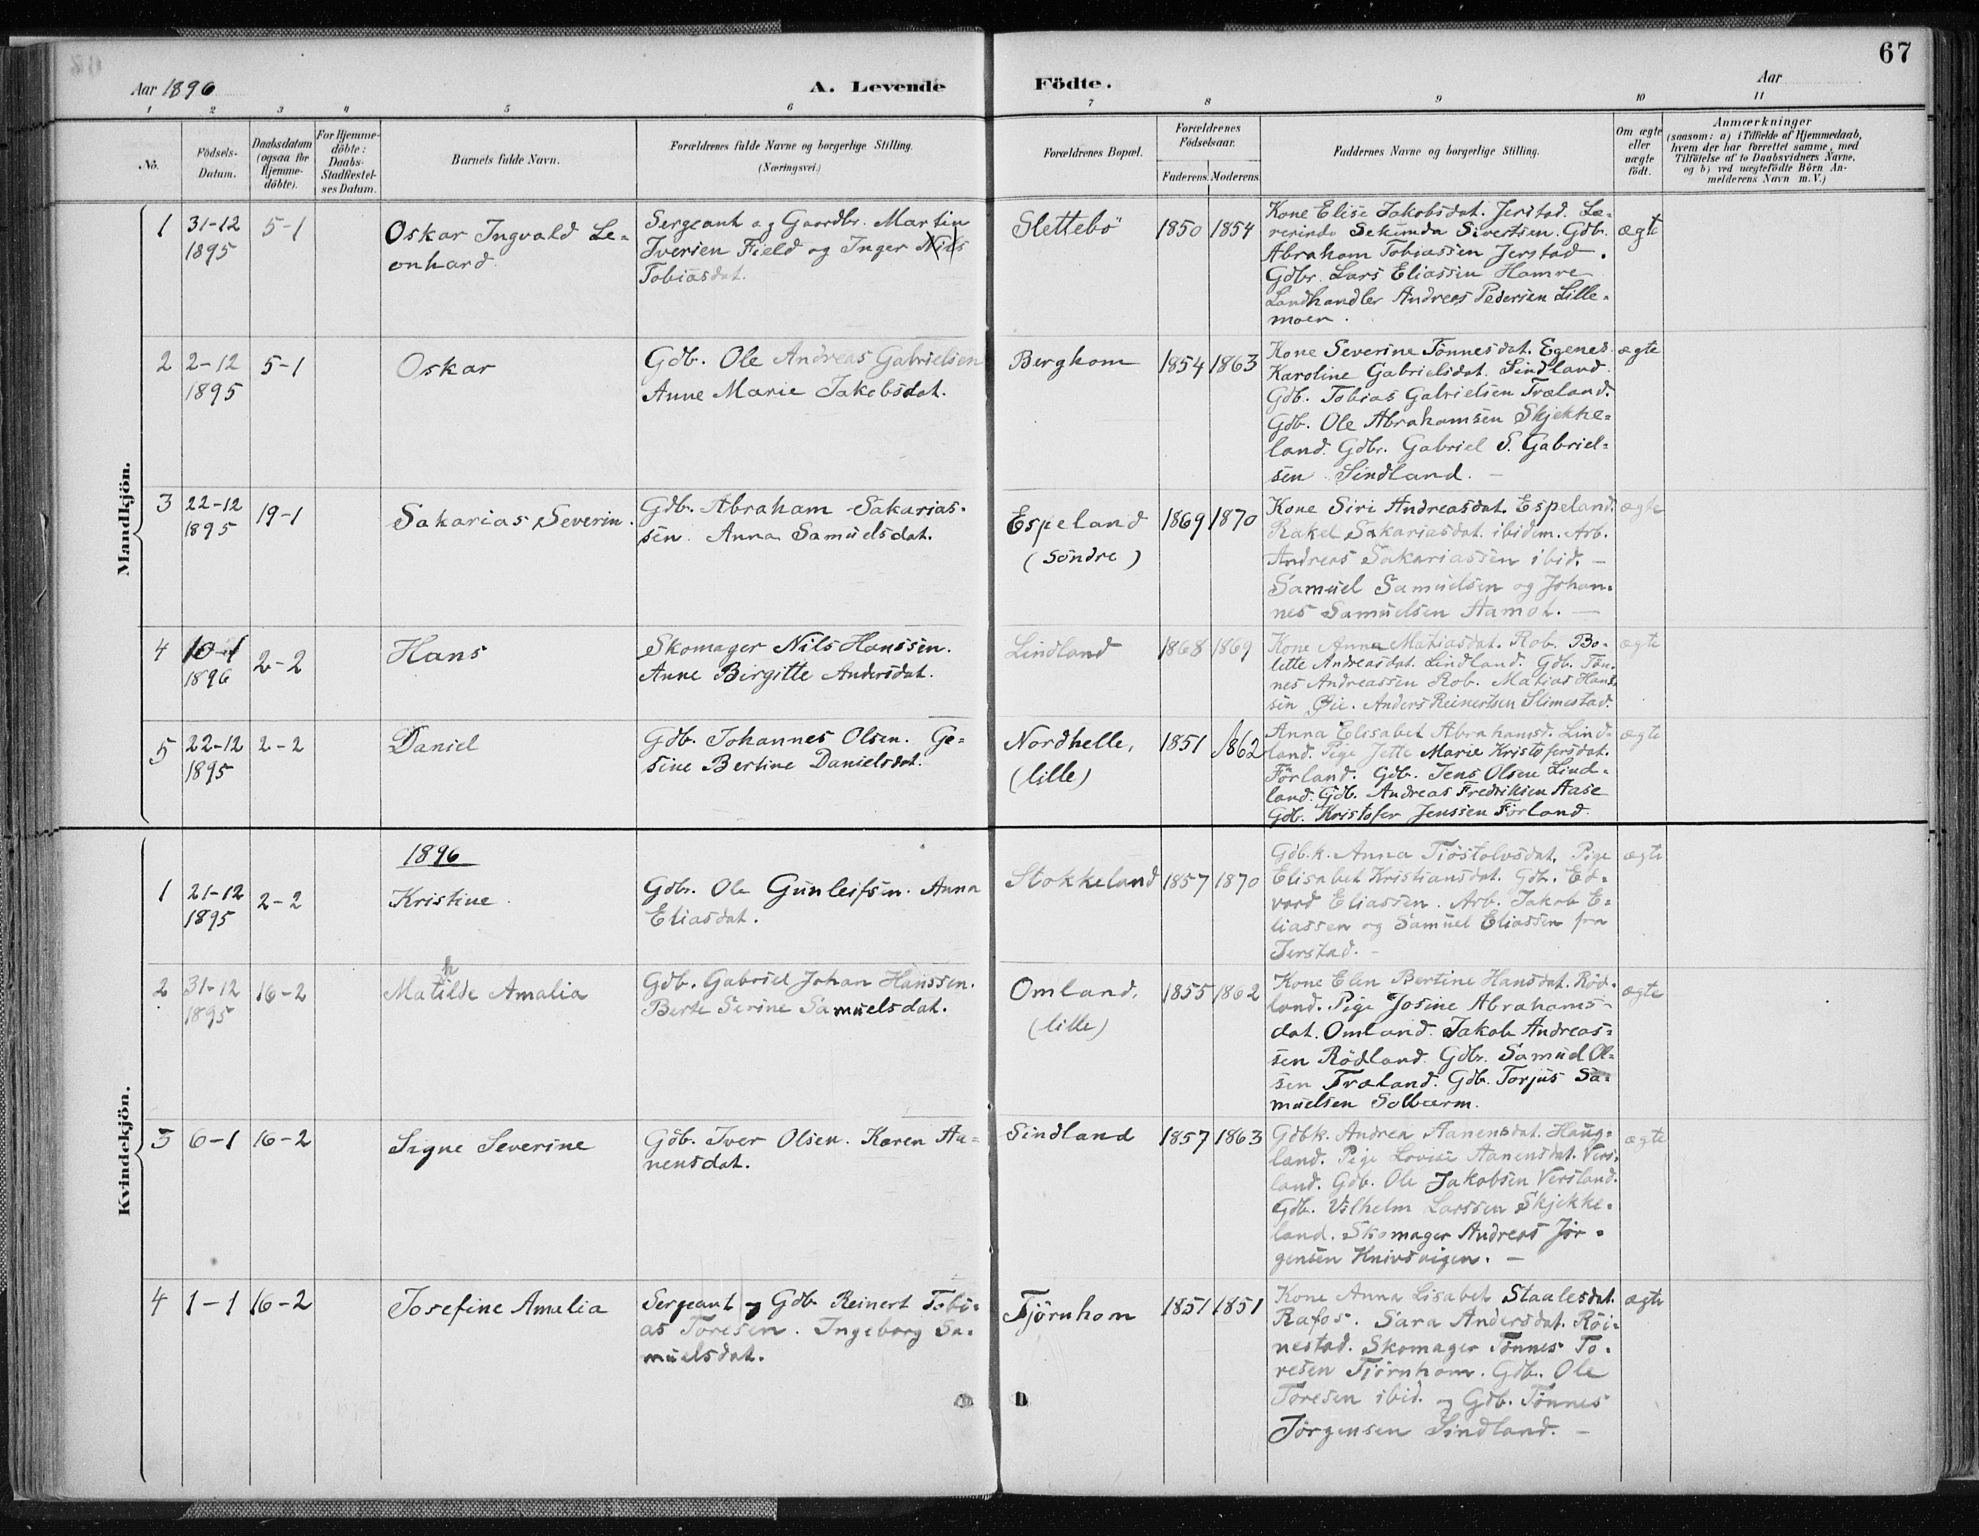 67
Aar 1896
A. Levende
Födte.
Aar
1 2 3 4 5 6 7 8 9 10 11
No.
Födsels-
Datum.
Daabsdatum
(ogsaa for
Hjemme-
döbte).
For Hjemme-
döbte:
Daabs-
Stadfæstel-
ses Datum.
Barnets fulde Navn.
Forældrenes fulde Navne og borgerlige Stilling.
(Næringsvei.)
Forældrenes Bopæl.
Forældrenes
Födselsaar.
Faderens. Moderens.
Faddernes Navne og borgerlige Stilling.
Om ægte
eller
uægte
födt.
Anmærkninger
(saasom: a) i Tilfælde af Hjemmedaab,
hvem der har forrettet samme, med
Tilföielse af to Daabsvidners Navne,
og b) ved uægtefödte Börn An-
melderens Navn m. V.)
Mandkjön.
1
31-12
1895
5-1
Oskar Ingvald Le-
onhard
Sergeant og Gaardbr. Martin
Iversen Field og Inger Nils
Tobiasdat.
Slettebö
1850 1854
Kone Elise Jakobsdat. Jerstad. Læ-
rerinde Sekunda Sivertsen. Gdb.
Abraham Tobiassen Jerstad.
Gdbr. Lars Eliassen Hamre
Landhandler Andreas Pedersen Lille-
moen.
ægte
2
2-12
1895
5-1
Oskar
Gdb. Ole Andreas Gabrielsen
Anne Marie Jakobsdat.
Berghom
1854 1863
Kone Severine Tönnesdat. Egenes.
Karoline Gabrielsdat. Sindland.
Gdb. Tobias Gabrielsen Træland.
Gdb. Ole Abrahamsen Skjekke-
land. Gdbr. Gabriel S. Gabriel-
sen Sindland. -
ægte
3
22-12
1895
19-1
Sakarias Severin.
Gdb. Abraham Sakarias-
sen. Anna Samuelsdat.
Espeland
(Söndre)
1869 1870
Kone Siri Andreasdat. Espeland.
Rakel Sakariasdat. ibidem. Arb.
Andreas Sakariassen ibid. -
Samuel Samuelsen og Johan-
nes Samuelsen Hamot. -
ægte
4
10-1
1896
2-2
Hans
Skomager Nils Hanssen.
Anne Birgitte Andersdat.
Lindland
1868 1869
Kone Anna Matiasdat. Rob. Bo-
lette Andreasdat. Lindland. Gdb. Tön-
nes Andreassen Rob. Matias Hans-
sen Öie. Anders Reinertsen Slimestad.
ægte
5
22-12
1895
2-2
Daniel
Gdb. Johannes Olsen. Ge-
sine Bertine Danielsdat.
Nordhelle,
(lille)
1851 1862
Anna Elisabet Abrahamsd. Lind-
land. Pige Jette Marie Kristofersdat.
Förland. Gdb. Jens Olsen Lind-
land. Gdb. Andreas Fredriksen Aase
Gdb. Kristofer Jenssen Förland.
ægte
Kvindekjön.
1896
1
21-12
1895
2-2
Kristine.
Gdb. Ole Gunleifsen. Anna
Eliasdat.
Stokkeland
1857 1870
Gdb.k. Anna Tiöstolvsdat. Pige
Elisabet Kristiansdat. Gdb. Ed-
vard Eliassen. Arb. Jakob E-
liassen og Samuel Eliassen fra
Jerstad. -
ægte
2
31-12
1895
16-2
h
Matilde Amalia
Gdb. Gabriel Johan Hanssen.
Berte Serine Samuelsdat.
Omland,
(lille)
1855 1862
Kone Elen Bertine Hansdat. Röd-
land. Pige Josine Abrahams-
dat. Omland. Jakob Andreas-
sen Rödland. Gdbr. Samuel Ol-
sen Træland. Gdb. Torjus Sa-
muelsen Solbærm.
ægte
3
6-1
16-2
Signe Severine
Gdb. Iver Olsen. Karen Aa-
nensdat.
Sindland
1857 1863
Gdbk. Andrea Aanensdat. Haug-
land. Pige Lovise Aanensdat. Vers-
land. Gdb. Ole Jakobsen Versland.
Gdb. Vilhelm Larssen Skjekke-
land. Skomager Andreas Jör-
gensen Knivsvigen. -
ægte
4
1-1
16-2
Josefine Amalia
Sergeant og Gdb. Reinert Tobi-
as Toresen. Ingeborg Sa-
muelsdat.
Tjörnhom
1851 1851
Kone Anna Lisabet Staalesdat.
Rafos. Sara Andersdat. Röi-
nestad. Skomager Tönnes To-
resen Tjörnhom. Gdb. Ole
Toresen ibid. og Gdb. Tönnes
Jörgensen Sindland. -
ægte